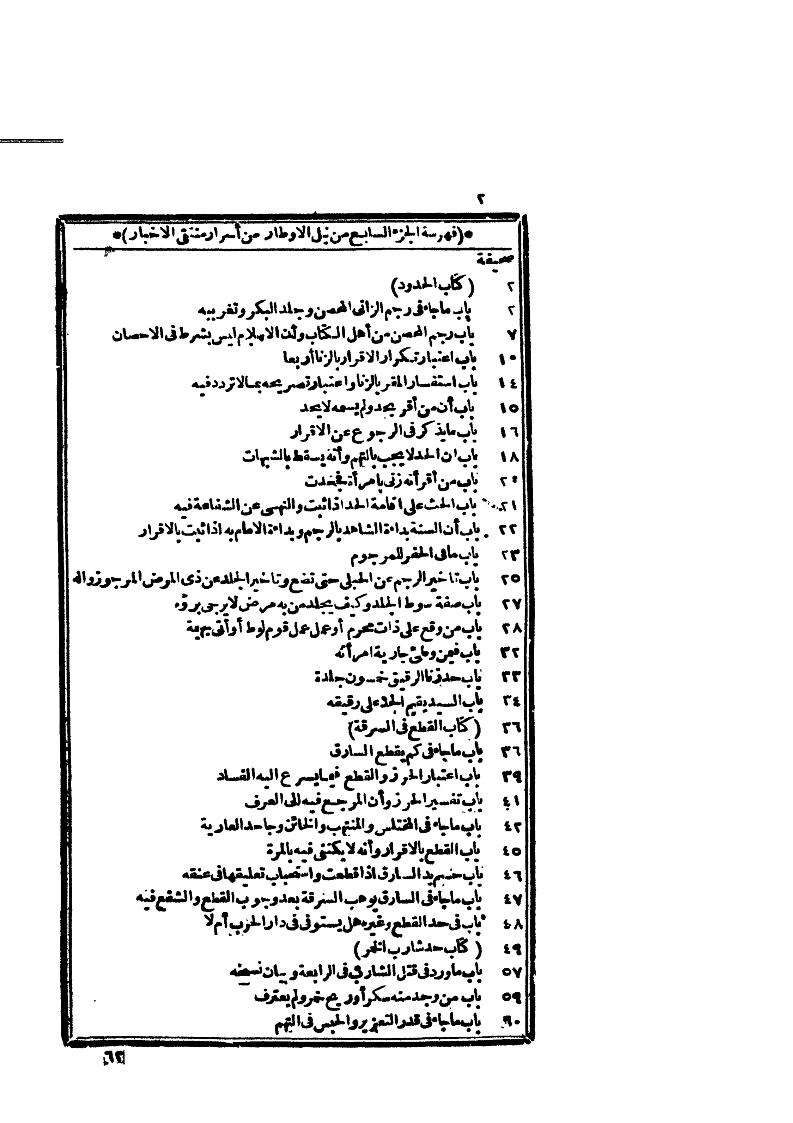 ٢
*(فهرسة الجزء السابع من نيل الاوطار من أسرار منتقى الاخبار)*
صحيفة
٢ (كتاب الحدود)
٢ باب ماجاء فى رجم الزانى المحصن وجلد البكر وتغريبه
٧ باب رجم المحصن من أهل الكتاب وأن الاسلام ليس بشرط فى الاحصان
١٠ باب اعتبار تكرار الاقرار بالزنا أربعا
١٤ باب استفسار المقر بالزنا واعتبار تصريحه بما لا تردد فيه
١٥ باب أن من أقر بحد ولم يسمه لا يحد
١٦ باب ما يذكر فى الرجوع عن الاقرار
١٨ باب ان الحد لا يجب بالتهم وأنه يسقط بالشبهات
٢٠ باب من أقر أنه زنى بامرأة فجحدت
٢١ باب الحث على اقامة الحد اذا ثبت والنهى عن الشفاعة فيه
٢٢ باب أن السنة بداءة الشاهد بالرجم وبداءة الامام به اذا ثبت بالاقرار
٢٣ باب ما فى الحفر للمرجوم
٢٥ باب تاخير الرجم عن الحبلى حتى تضع وتاخير الجلد عن ذى المرض المرجو زواله
٢٧ باب صفة سوط الجلد وكيف يجلد من به مرض لا يرجى برؤه
٢٨ باب من وقع على ذات محرم أو عمل عمل قوم لوط أو أتى بهيمة
٣٢ باب فيمن وطئ جارية امرأته
٣٣ باب حد زنا الرقيق خمسون جلدة
٣٤ باب السيد يقيم الحد على رقيقه
٣٦ (كتاب القطع فى السرقة)
٣٦ باب ماجاء فى كم يقطع السارق
٣٩ باب اعتبار الحرز والقطع فيما يسرع اليه الفساد
٤١ باب تفسير الحرز وأن المرجع فيه الى العرف
٤٢ باب ماجاء فى المختلس والمنتهب والخائن وجاحد العارية
٤٥ باب القطع بالاقرار وأنه لا يكتفى فيه بالمرة
٤٦ باب حسم يد السارق اذا قطعت واستحباب تعليقها فى عنقه
٤٧ باب ماجاء فى السارق يوهب السرقة بعد وجوب القطع والشفع فيه
٤٨ باب فى حد القطع وغيره هل يستوفى فى دار الحرب أم لا
٤٩ (كتاب حد شارب الخمر)
٥٧ باب ماورد فى قتل الشارب فى الرابعة وبيان نسخه
٥٩ باب من وجد منه سكر أو ريح خمر ولم يعترف
٦٠ باب ماجاء فى قدر التعزير والحبس فى التهم
٦٢